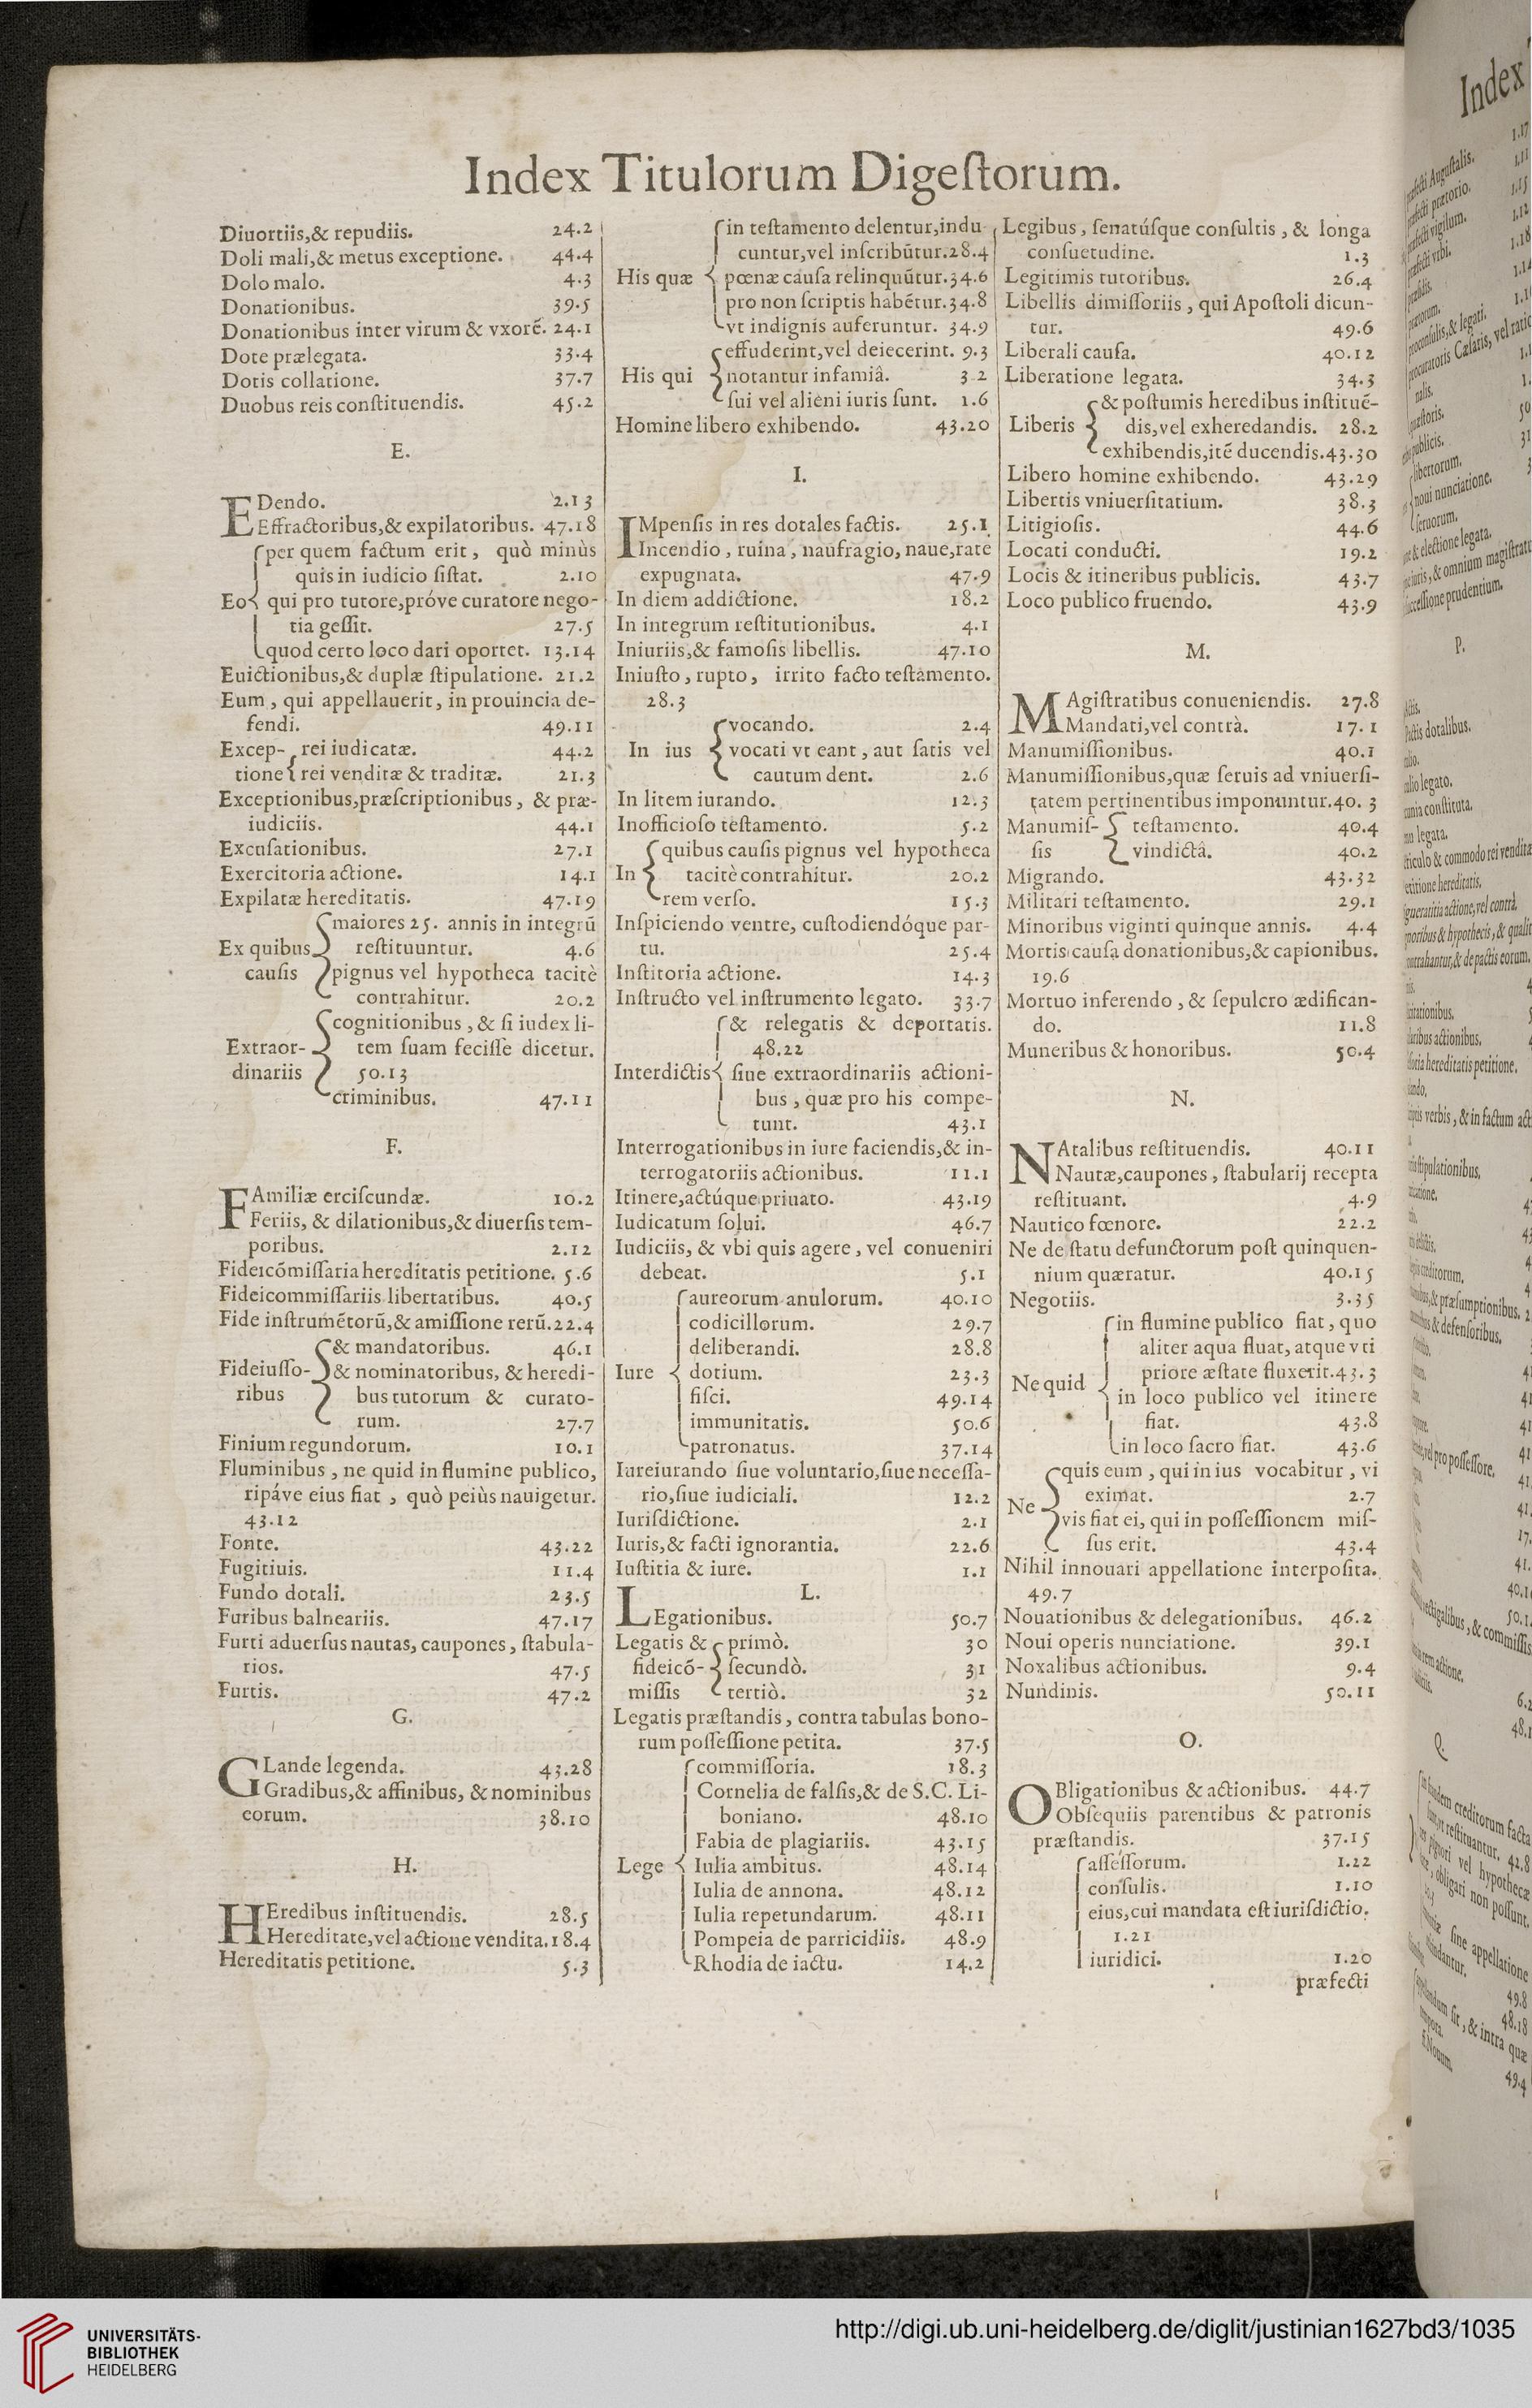 Index Titulorum Digeſtorum.
Diuortiis,& repudiis. 24.2
Doli mali,& metus exceptione. 44.4
Dolo malo. 4.3
Donationibus. 39.5
Donationibus inter virum & vxorẽ. 24.1
Dote prælegata. 33.4
Dotis collatione. 37.7
Duobus reis conſtituendis. 45.2
E.
EDendo. 2.13
Effractoribus,& expilatoribus. 47.18
per quem factum erit, quò minùs
quis in iudicio ſiſtat. 2.10
Eo qui pro tutore,próve curatore nego-
tia geſſit. 27.5
quod certo loco dari oportet. 13.14
Euictionibus,& duplæ ſtipulatione. 21.2
Eum, qui appellauerit, in prouincia de-
fendi. 49.11
Excep- rei iudicatæ. 44.2
tione rei venditæ & traditæ. 21.3
Exceptionibus,præſcriptionibus, & præ-
iudiciis. 44.1
Excuſationibus. 27.1
Exercitoria actione. 14.1
Expilatæ hereditatis. 47.19
maiores 25. annis in integrũ
Ex quibus reſtituuntur. 4.6
cauſis pignus vel hypotheca tacitè
contrahitur. 20.2
cognitionibus, & ſi iudex li-
Extraor- tem ſuam feciſſe dicetur.
dinariis 50.13
criminibus. 47.11
F.
FAmiliæ erciſcundæ. 10.2
Feriis, & dilationibus,& diuerſis tem-
poribus. 2.12
Fideicõmiſſaria hereditatis petitione. 5.6
Fideicommiſſariis libertatibus. 40.5
Fide inſtrumẽtorũ,& amiſſione rerũ.22.4
& mandatoribus. 46.1
Fideiuſſo- & nominatoribus, & heredi-
ribus bus tutorum & curato-
rum. 27.7
Finium regundorum. 10.1
Fluminibus, ne quid in flumine publico,
ripáve eius fiat, quò peiùs nauigetur.
43.12
Fonte. 43.22
Fugitiuis. 11.4
Fundo dotali. 23.5
Furibus balneariis. 47.17
Furti aduerſus nautas, caupones, ſtabula-
rios. 47.5
Furtis. 47.2
G.
GLande legenda. 43.28
Gradibus,& affinibus, & nominibus
eorum. 38.10
H.
HEredibus inſtituendis. 28.5
Hereditate,vel actione vendita.18.4
Hereditatis petitione. 5.3
in teſtamento delentur,indu
cuntur,vel inſcribũtur.28.4
His quæ pœnæ cauſa relinquũtur.34.6
pro non ſcriptis habẽtur.34.8
vt indignis auferuntur. 34.9
effuderint,vel deiecerint. 9.3
His qui notantur infamiâ. 3 2
ſui vel alieni iuris ſunt. 1.6
Homine libero exhibendo. 43.20
I.
IMpenſis in res dotales factis. 25.1
Incendio, ruina, naufragio, naue,rate
expugnata. 47.9
In diem addictione. 18.2
In integrum reſtitutionibus. 4.1
Iniuriis,& famoſis libellis. 47.10
Iniuſto, rupto, irrito facto teſtamento.
28.3
vocando. 2.4
In ius vocati vt eant, aut ſatis vel
cautum dent. 2.6
In litem iurando. 12.3
Inofficioſo teſtamento. 5.2
quibus cauſis pignus vel hypotheca
In tacitè contrahitur. 20.2
rem verſo. 15.3
Inſpiciendo ventre, cuſtodiendóque par-
tu. 25.4
Inſtitoria actione. 14.3
Inſtructo vel inſtrumento legato. 33.7
& relegatis & deportatis.
48.22
Interdictis ſiue extraordinariis actioni-
bus, quæ pro his compe-
tunt. 43.1
Interrogationibus in iure faciendis,& in-
terrogatoriis actionibus. 11.1
Itinere,actúque priuato. 43.19
Iudicatum ſolui. 46.7
Iudiciis, & vbi quis agere, vel conueniri
debeat. 5.1
aureorum anulorum. 40.10
codicillorum. 29.7
deliberandi. 28.8
Iure dotium. 23.3
fiſci. 49.14
immunitatis. 50.6
patronatus. 37.14
Iureiurando ſiue voluntario,ſiue neceſſa-
rio,ſiue iudiciali. 12.2
Iuriſdictione. 2.1
Iuris,& facti ignorantia. 22.6
Iuſtitia & iure. 1.1
L.
LEgationibus. 50.7
Legatis & primò. 30
fideicõ- ſecundò. 31
miſſis tertiò. 32
Legatis præſtandis, contra tabulas bono-
rum poſſeſſione petita. 37.5
commiſſoria. 18.3
Cornelia de falſis,& de S.C. Li-
boniano. 48.10
Fabia de plagiariis. 43.15
Lege Iulia ambitus. 48.14
Iulia de annona. 48.12
Iulia repetundarum. 48.11
Pompeia de parricidiis. 48.9
Rhodia de iactu. 14.2
Legibus, ſenatúſque conſultis, & longa
conſuetudine. 1.3
Legitimis tutoribus. 26.4
Libellis dimiſſoriis, qui Apoſtoli dicun-
tur. 49.6
Liberali cauſa. 40.12
Liberatione legata. 34.3
& poſtumis heredibus inſtituẽ-
Liberis dis,vel exheredandis. 28.2
exhibendis,itẽ ducendis.43.30
Libero homine exhibendo. 43.29
Libertis vniuerſitatium. 38.3
Litigioſis. 44.6
Locati conducti. 19.2
Locis & itineribus publicis. 43.7
Loco publico fruendo. 43.9
M.
MAgiſtratibus conueniendis. 27.8
Mandati,vel contrà. 17.1
Manumiſſionibus. 40.1
Manumiſſionibus,quæ ſeruis ad vniuerſi-
tatem pertinentibus imponuntur.40. 3
Manumiſ- teſtamento. 40.4
ſis vindictâ. 40.2
Migrando. 43.32
Militari teſtamento. 29.1
Minoribus viginti quinque annis. 4.4
Mortis cauſa donationibus,& capionibus.
19.6
Mortuo inferendo, & ſepulcro ædifican-
do. 11.8
Muneribus & honoribus. 50.4
N.
NAtalibus reſtituendis. 40.11
Nautæ,caupones, ſtabularij recepta
reſtituant. 4.9
Nautico fœnore. 22.2
Ne de ſtatu defunctorum poſt quinquen-
nium quæratur. 40.15
Negotiis. 3.35
in flumine publico fiat, quo
aliter aqua fluat, atque vti
Ne quid priore æſtate fluxerit.43.3
in loco publico vel itinere
fiat. 43.8
in loco ſacro fiat. 43.6
quis eum, qui in ius vocabitur, vi
Ne eximat. 2.7
vis fiat ei, qui in poſſeſſionem miſ-
ſus erit. 43.4
Nihil innouari appellatione interpoſita.
49.7
Nouationibus & delegationibus. 46.2
Noui operis nunciatione. 39.1
Noxalibus actionibus. 9.4
Nundinis. 50.11
O.
OBligationibus & actionibus. 44.7
Obſequiis parentibus & patronis
præſtandis. 37.15
aſſeſſorum. 1.22
conſulis. 1.10
eius,cui mandata eſt iuriſdictio.
1.21
iuridici. 1.20
præfecti
Index
UNIVERSITÄTS-
BIBLIOTHEK
HEIDELBERG
http://digi.ub.uni-heidelberg.de/diglit/justinian1627bd3/1035